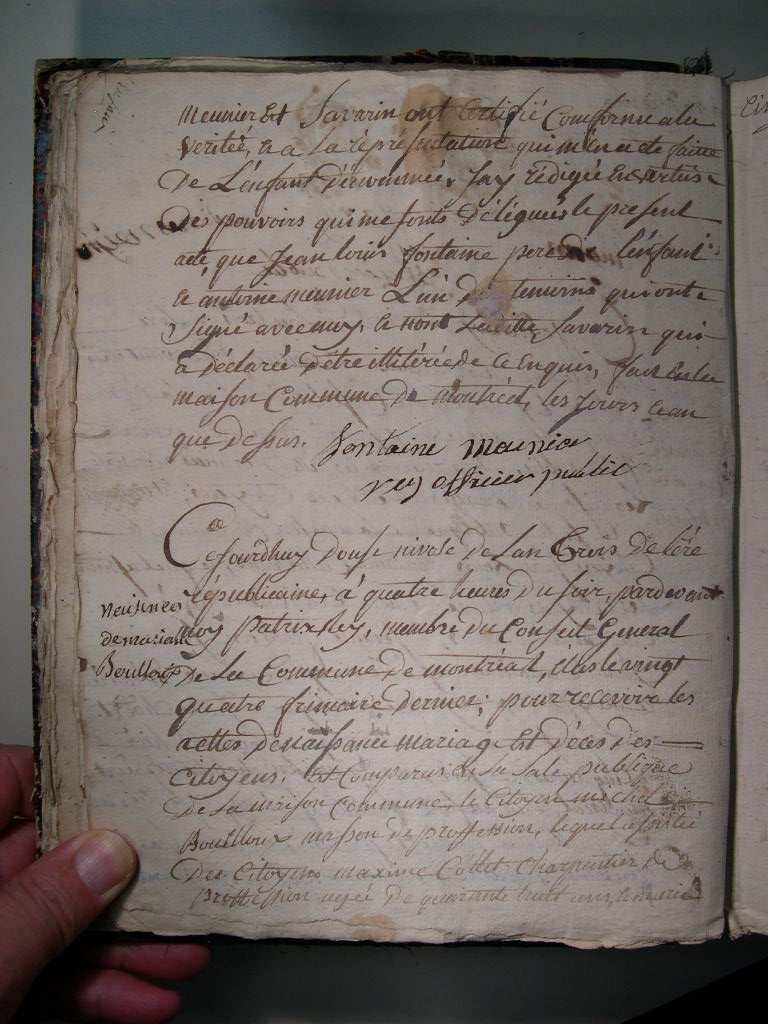 meunier Et Savarin ont Certifié Comforme a la
Verité, Et a La représentation qui m'en a eté faitte
De L'enfant denommée, J'ay rédigée En vertus
Des pouvoirs qui me sonts Délégués le présent
acte, que Jean louis fontaine pere De l'enfant
Et antoine meunier L'un des temoins qui ont
Signé avec moy, Et non Savarin qui
a Déclarée D'etre illitérée de Ce Enquis, fait En la
maison Commune De montréal, les Jours Et an
que Dessus. fontaine Meunier
rey officier public
Cejourdhuy Douse nivose De Lan Trois De l'ére
républicaine, à quatre heures Du Soir, pardevant
moy Patrix Rey, membre Du Conseil General
De La Commune De montréal, élus le vingt
quatre frimaire Dernier, pour recevoire les
actes De naissance Mariage Et Déces Des
Citoyens. Est Comparus En La Sale publique
De La maison Commune, le Citoyen michel
Boulloux masson de proffession, lequel assistée
Des Citoyens maxime Collet Charpentier De
Proffession agée De quarante huit ans,
naissance
de mariane
Boulloux